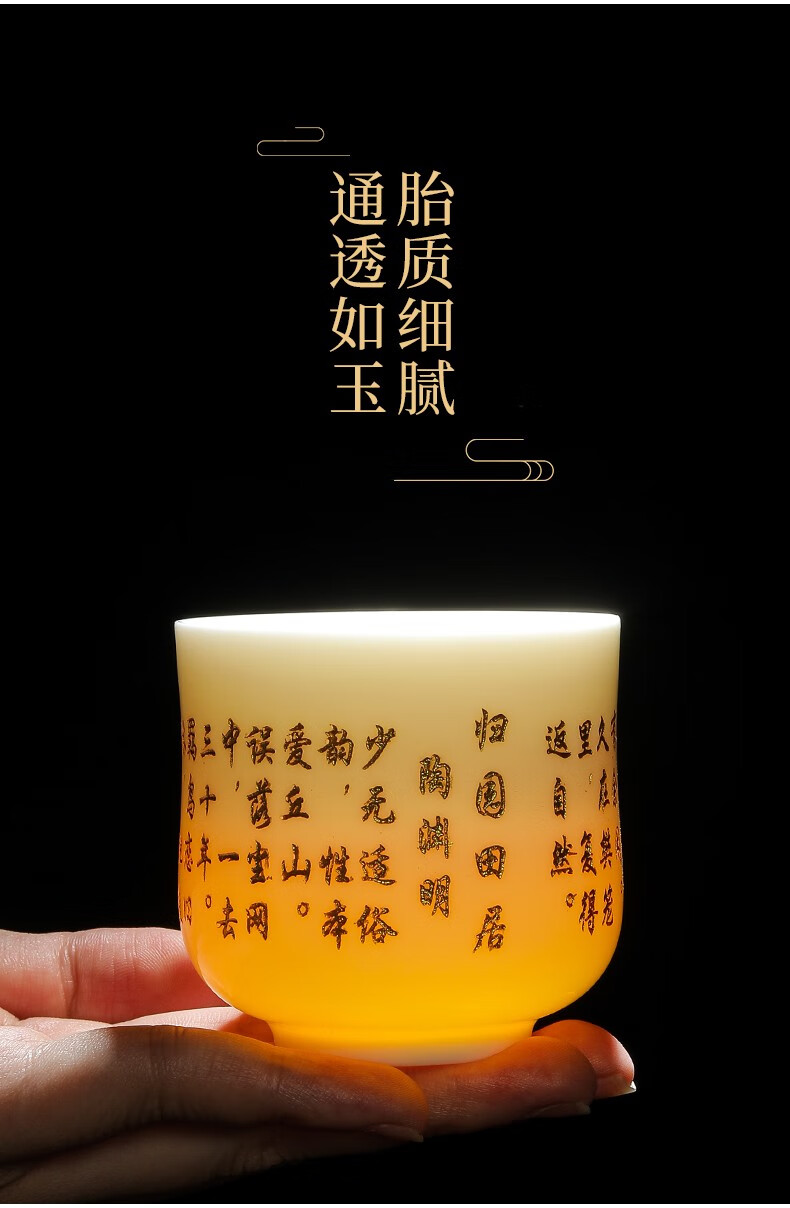 胎质细腻
通透如玉
久在樊笼
里复得
返自然。
归园田居
陶渊明
少无适俗
韵，性本
爱丘山。
误落尘网
中，一去
三十年。
羁鸟恋